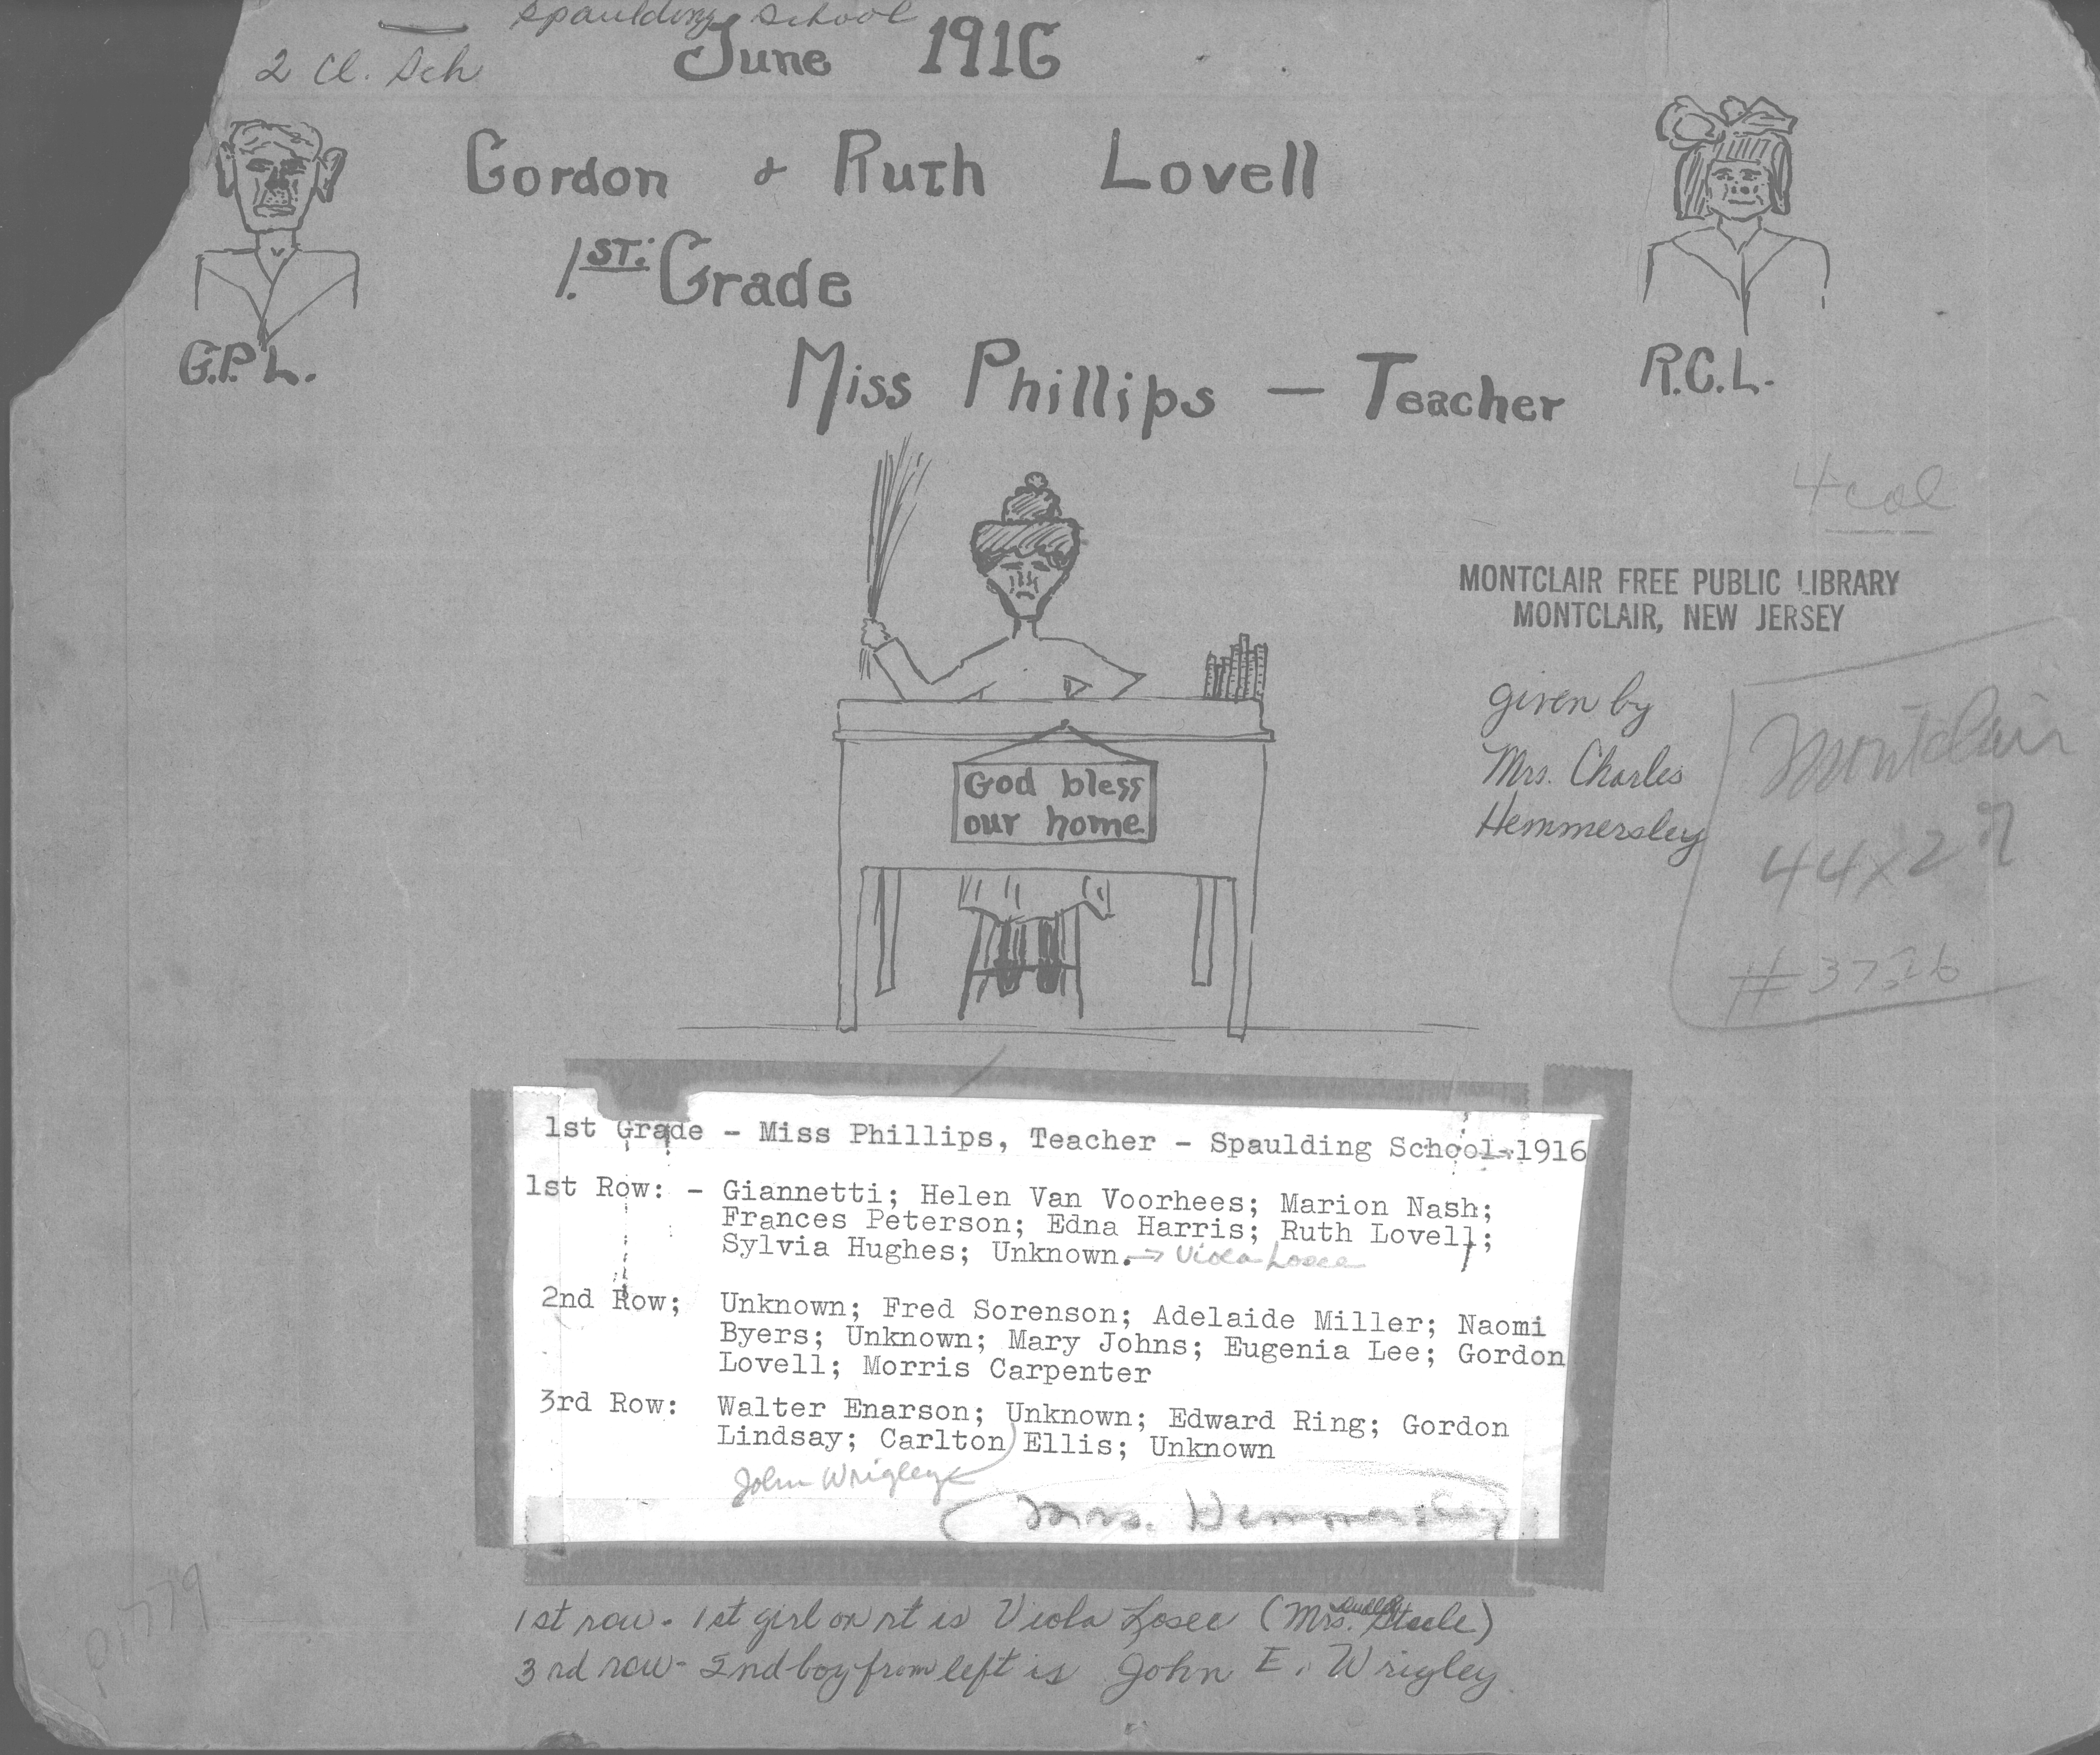 Spaulding School
2 Cl. Sch
June 1916
Gordon & Ruth Lovell
1.ST: Grade
G.P.L.
R.C.L.
Miss Phillips — Teacher
4 col
MONTCLAIR FREE PUBLIC LIBRARY
MONTCLAIR, NEW JERSEY
given by
Mrs. Charles
Hemmersley
Montclair
44x27
God bless
our home
1st Grade - Miss Phillips, Teacher - Spaulding School-1916
1st Row: - Giannetti; Helen Van Voorhees; Marion Nash;
Frances Peterson; Edna Harris; Ruth Lovell;
Sylvia Hughes; Unknown. → Viola Losee
2nd Row; Unknown; Fred Sorenson; Adelaide Miller; Naomi
Byers; Unknown; Mary Johns; Eugenia Lee; Gordon
Lovell; Morris Carpenter
3rd Row: Walter Enarson; Unknown; Edward Ring; Gordon
Lindsay; Carlton Ellis; Unknown
John Wrigley
Mrs. Hemmersley
1st row - 1st girl on rt is Viola Losee (Mrs. Steele)
3rd row - 2nd boy from left is John E. Wrigley